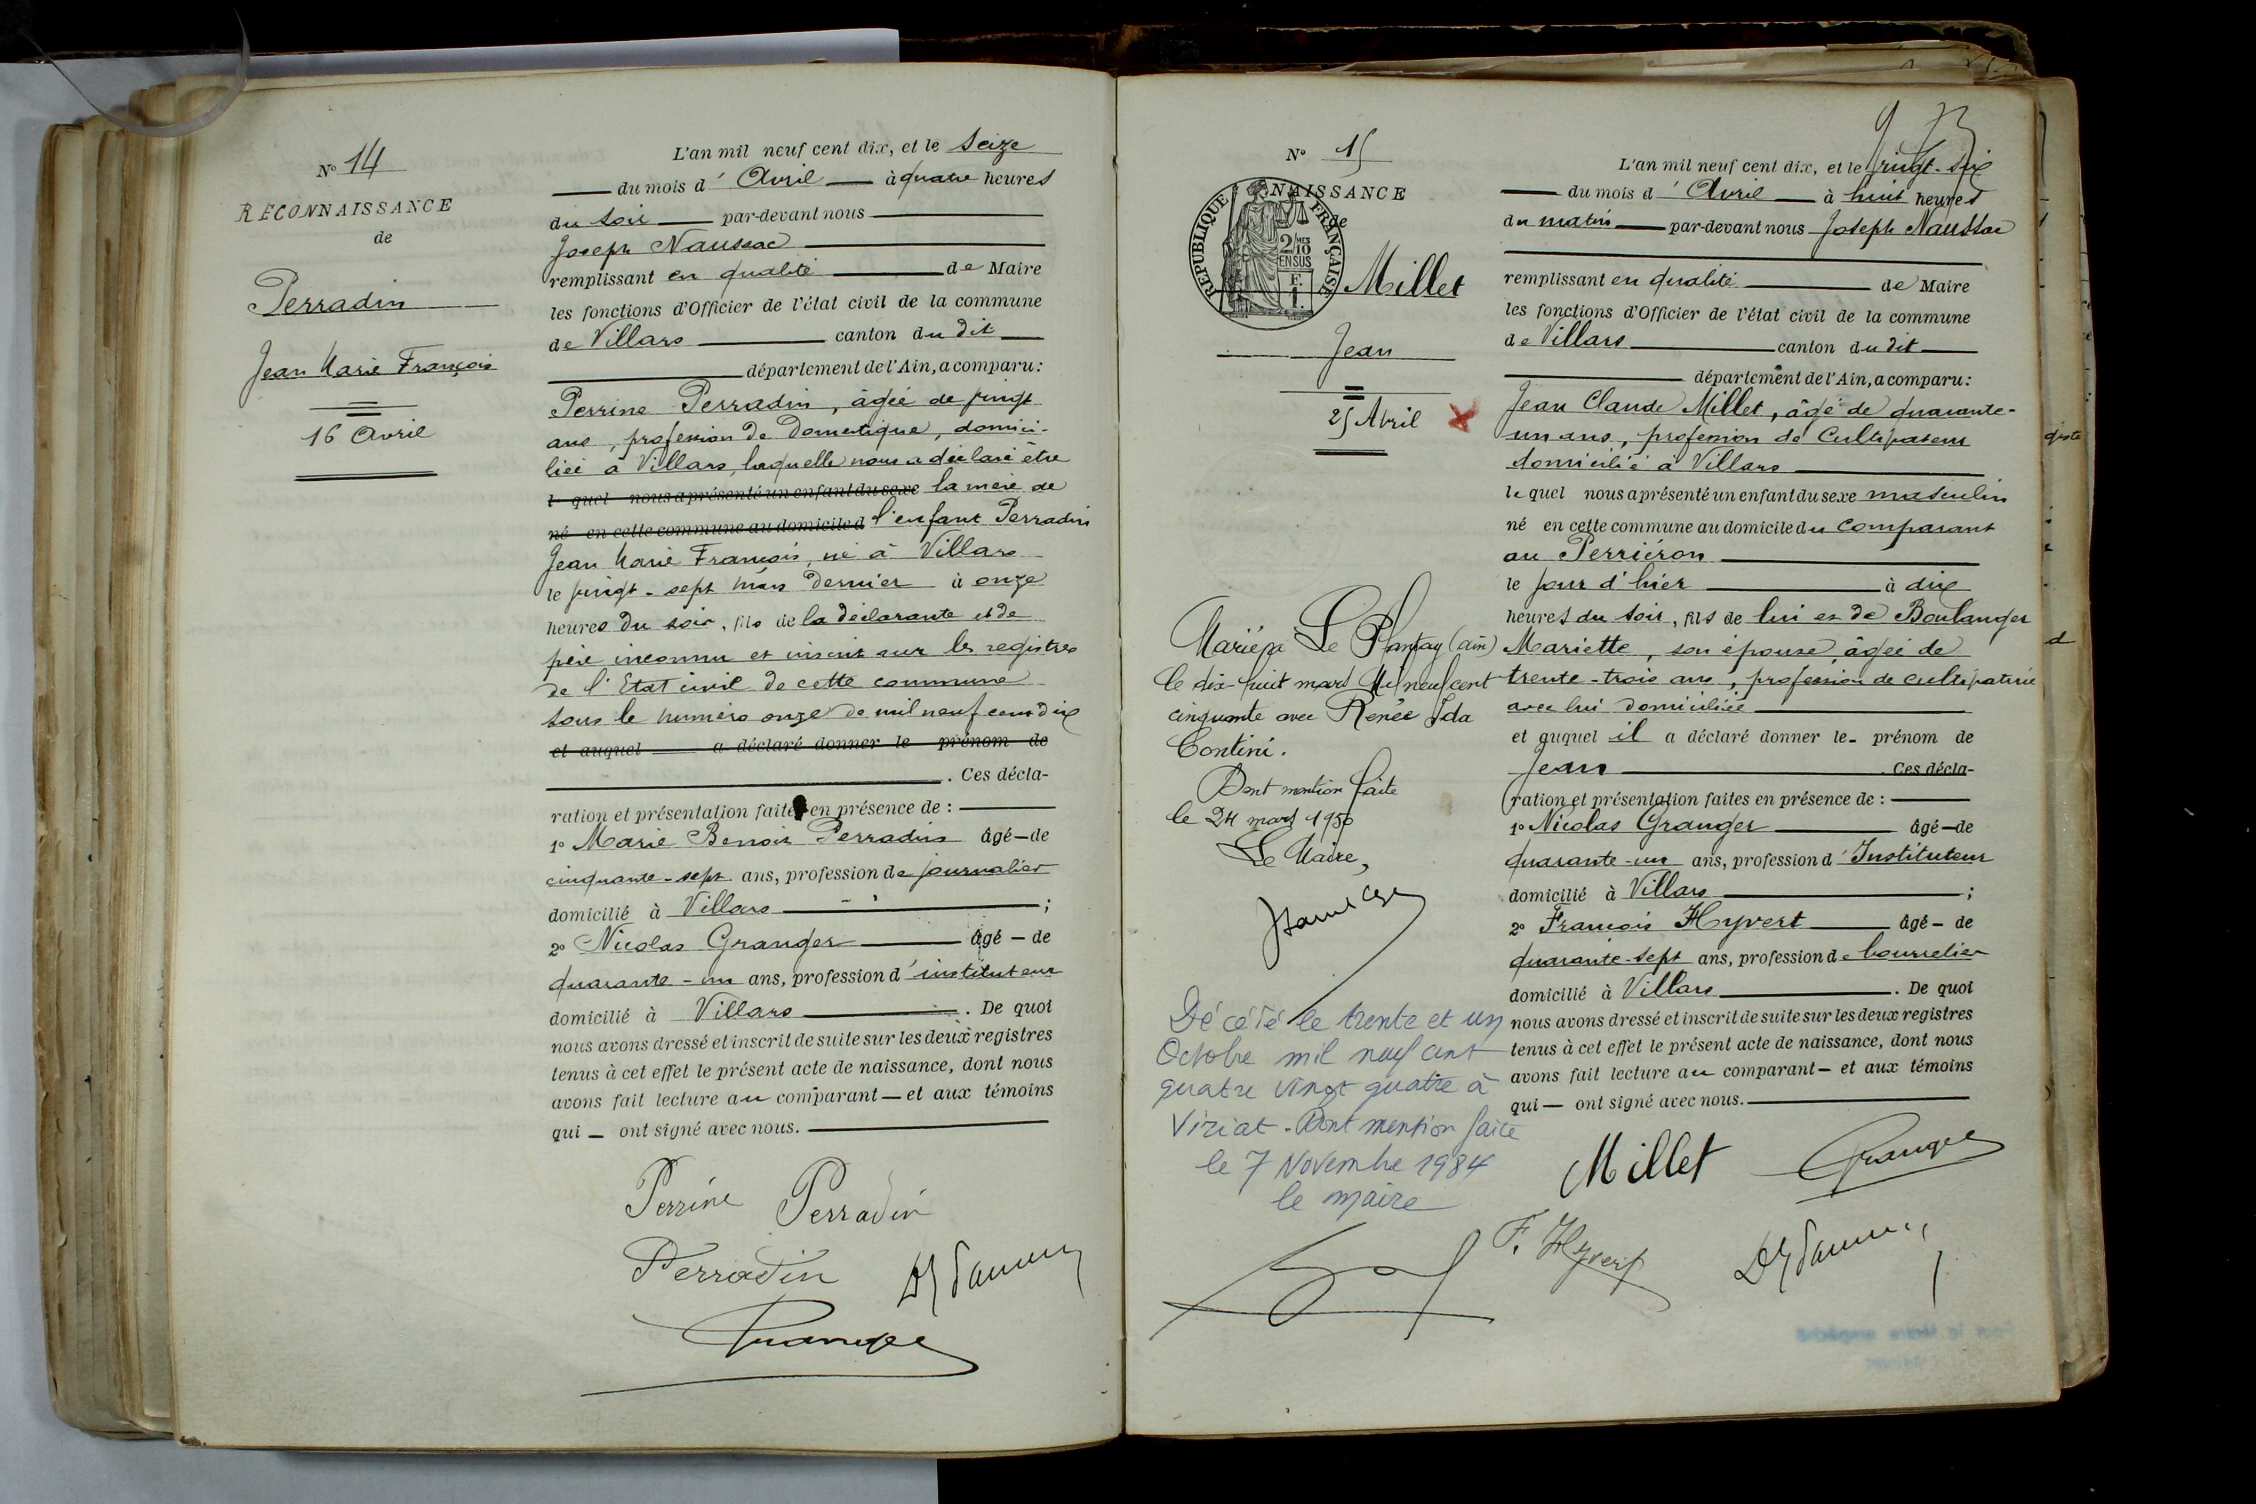 N° 14
RECONNAISSANCE
de
Perradin
Jean Marie François
16 Avril
L'an mil neuf cent dix, et le Seize
du mois d' Avril à quatre heures
du soir par-devant nous
Joseph Naussac
remplissant en qualité de Maire
les fonctions d'Officier de l'état civil de la commune
de Villars canton du dit
département de l'Ain, a comparu:
Perrine Perradin, âgée de vingt
ans, profession de Domestique, domici-
liée à Villars, laquelle nous a déclaré être
l quel nous a présenté un enfant du sexe la mère de
né en cette commune au domicile d l'enfant Perradin
Jean Marie François, né à Villars
le vingt-sept mars dernier à onze
heures du soir, fils de la déclarante et de
père inconnu et inscrit sur les registres
de l'Etat civil de cette commune
sous le numéro onze de mil neuf cent dix
et auquel a déclaré donner le prénom de
. Ces décla-
ration et présentation faites en présence de :
1° Marie Benoit Perradin âgé de
cinquante-sept ans, profession de journalier
domicilié à Villars ;
2° Nicolas Granger âgé de
quarante-un ans, profession d'instituteur
domicilié à Villars . De quoi
nous avons dressé et inscrit de suite sur les deux registres
tenus à cet effet le présent acte de naissance, dont nous
avons fait lecture au comparant et aux témoins
qui ont signé avec nous.
Perrine Perradin
Perradin
Granger
9
N° 15
NAISSANCE
de
RÉPUBLIQUE FRANÇAISE
2/10 MES
EN SUS
F.
1.
Millet
Jean
25 Avril
L'an mil neuf cent dix, et le vingt-six
du mois d' Avril à huit heures
du matin par-devant nous Joseph Naussac
remplissant en qualité de Maire
les fonctions d'Officier de l'état civil de la commune
de Villars canton du dit
département de l'Ain, a comparu:
Jean Claude Millet, âgé de quarante-
un ans, profession de Cultivateur
domicilié à Villars
lequel nous a présenté un enfant du sexe masculin
né en cette commune au domicile du comparant
au Perriéron
le jour d'hier à dix
heures du soir, fils de lui et de Boulanger
Mariette, son épouse, âgée de
trente-trois ans, profession de cultivatrice
avec lui domiciliée
et auquel il a déclaré donner le prénom de
Jean . Ces décla-
ration et présentation faites en présence de :
1° Nicolas Granger âgé de
quarante-un ans, profession d'Instituteur
domicilié à Villars ;
2° François Hyvert âgé de
quarante-sept ans, profession de bourrelier
domicilié à Villars . De quoi
nous avons dressé et inscrit de suite sur les deux registres
tenus à cet effet le présent acte de naissance, dont nous
avons fait lecture au comparant et aux témoins
qui ont signé avec nous.
Millet Granger
F. Hyvert
Marié au Le Plantay (Ain)
le dix-huit mars Mil neuf cent
cinquante avec Renée Ida
Contini.
Dont mention faite
le 24 mars 1950
Le Maire,
Décédé le trente et un
Octobre mil neuf cent
quatre vingt quatre à
Viriat. Dont mention faite
le 7 Novembre 1984
le maire